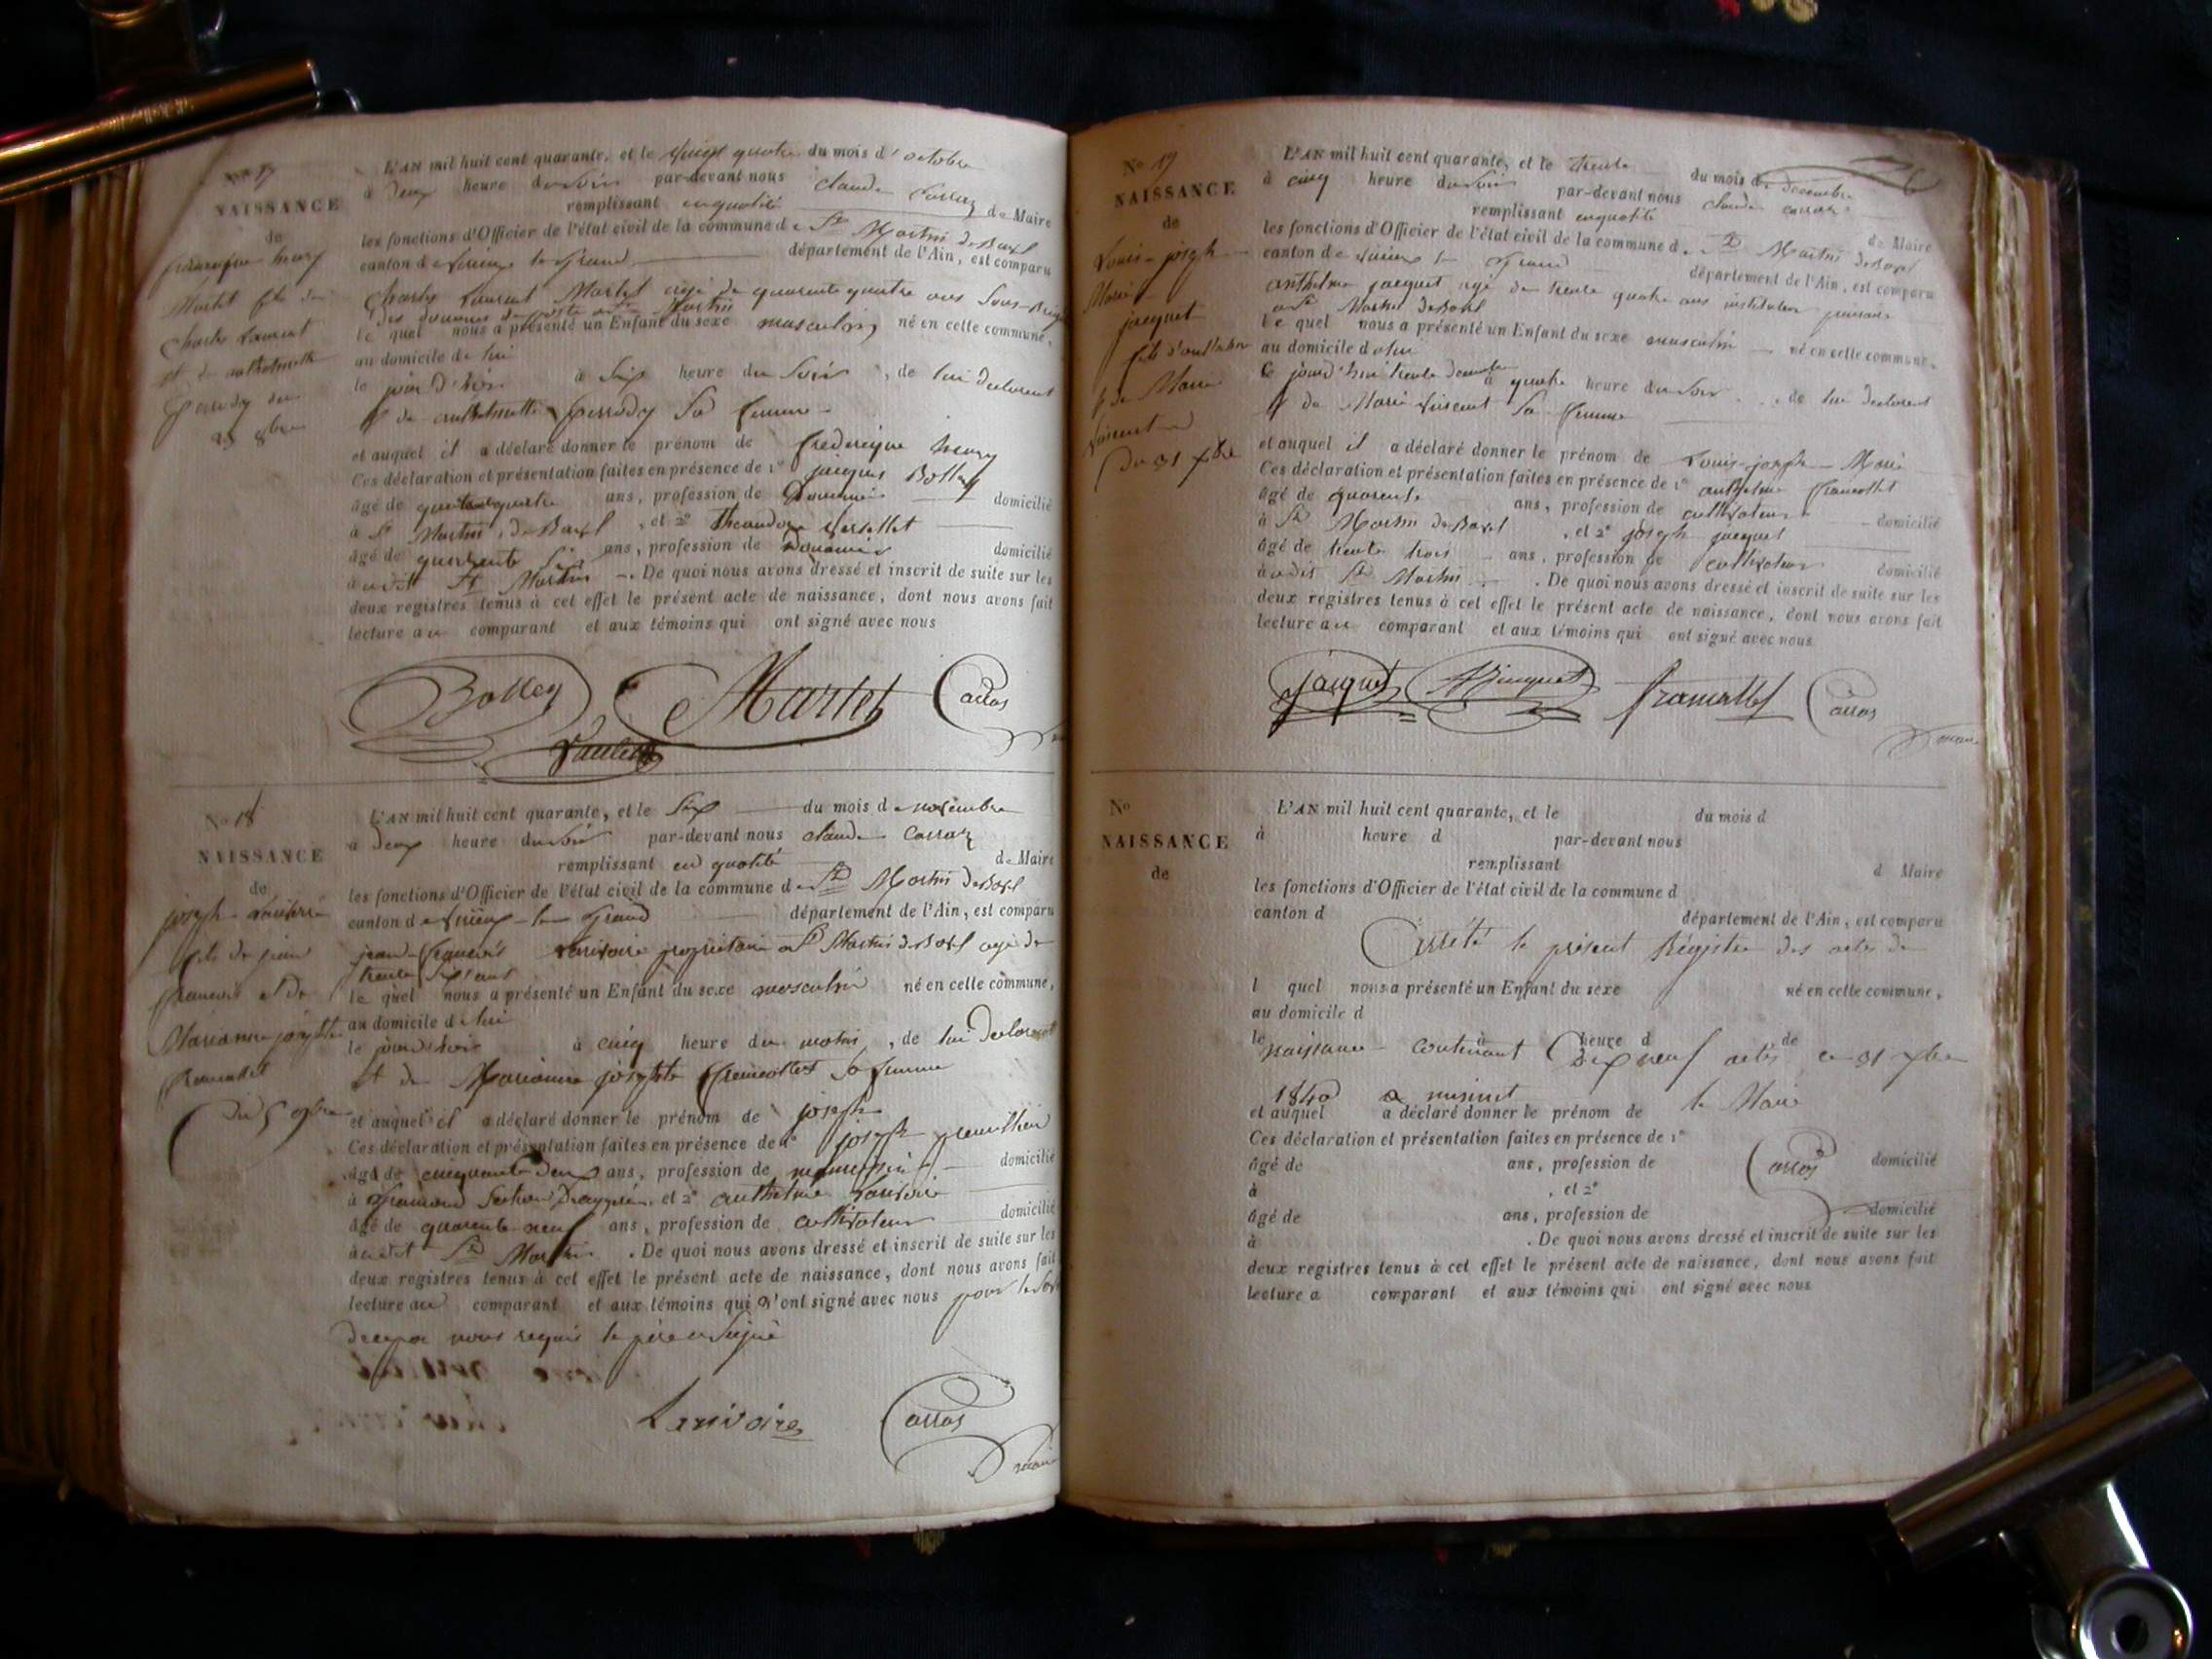 No 17
NAISSANCE
de
henry
Martel fils de
Charles Laurent
et de anthelmette
perrody du
23 8bre
L'AN mil huit cent quarante, et le vingt quatre du mois d'octobre
à deux heure du soir par-devant nous claude Carraz
remplissant en qualité de Maire
les fonctions d'Officier de l'état civil de la commune de St Martin de Bavel
canton de virieux le Grand département de l'Ain, est comparu
Charles Laurent Martel agé de quarente quatre ans Sous-
des douanes de poste St Martin
le quel nous a présenté un Enfant du sexe masculin né en cette commune,
au domicile de lui
le jour d'hier à six heure du soir, de lui declarent
et de anthelmette perrody sa femme
et auquel il a déclaré donner le prénom de frederique henry
Ces déclaration et présentation faites en présence de 1° jacques Bolley
âgé de quatre ans, profession de Douanier domicilié
à St Martin de Bavel, et 2°
âgé de quarente six ans, profession de Douanier domicilié
audit St Martin. De quoi nous avons dressé et inscrit de suite sur les
deux registres tenus à cet effet le présent acte de naissance, dont nous avons fait
lecture au comparant et aux témoins qui ont signé avec nous
Bolley Martel Carraz
No 18
NAISSANCE
de
joseph
fils de jean
francois et de
Marianne josephte
du 5 9bre
L'AN mil huit cent quarante, et le six du mois de novembre
à deux heure du soir par-devant nous claude Carraz
remplissant en qualité de Maire
les fonctions d'Officier de l'état civil de la commune de St Martin de Bavel
canton de virieux le Grand département de l'Ain, est comparu
jean francois Larivoire propriétaire a St Martin de Bavel agé de
trente sept ans
le quel nous a présenté un Enfant du sexe masculin né en cette commune,
au domicile de lui
le jour d'hier à cinq heure du matin, de lui declarent
et de Marianne josephte sa femme
et auquel il a déclaré donner le prénom de joseph
Ces déclaration et présentation faites en présence de 1° joseph
âgé de cinquante deux ans, profession de domicilié
à et 2° anthelme Larivoire
âgé de quarente neuf ans, profession de cultivateur domicilié
audit St Martin. De quoi nous avons dressé et inscrit de suite sur les
deux registres tenus à cet effet le présent acte de naissance, dont nous avons fait
lecture au comparant et aux témoins qui n'ont signé avec nous pour ne savoir
de ce par nous requis le père a signé
Larivoire Carraz
maire
No 19
NAISSANCE
de
Louis-joseph
Marie
jacquet
fils d'anthelme
et de Marie
vincent
du 31 Xbre
L'AN mil huit cent quarante, et le trente du mois de decembre
à cinq heure du soir par-devant nous claude carraz
remplissant en qualité de Maire
les fonctions d'Officier de l'état civil de la commune de St Martin de Bavel
canton de virieux le Grand département de l'Ain, est comparu
anthelme jacquet agé de trente quatre ans instituteur primaire
a St Martin de Bavel
le quel nous a présenté un Enfant du sexe masculin né en cette commune,
au domicile de lui
le jourd'hui trente decembre à quatre heure du soir, de lui declarent
et de Marie vincent sa femme
et auquel il a déclaré donner le prénom de Louis-joseph Marie
Ces déclaration et présentation faites en présence de 1° anthelme
âgé de quarente ans, profession de cultivateur domicilié
à St Martin de Bavel, et 2° joseph jacquet
âgé de trente trois ans, profession de cultivateur domicilié
audit St Martin. De quoi nous avons dressé et inscrit de suite sur les
deux registres tenus à cet effet le présent acte de naissance, dont nous avons fait
lecture au comparant et aux témoins qui ont signé avec nous
jacquet A Jacquet Carraz
maire
No
NAISSANCE
de
L'AN mil huit cent quarante, et le du mois d
à heure d par-devant nous
remplissant d Maire
les fonctions d'Officier de l'état civil de la commune d
canton d département de l'Ain, est comparu
Arrêté le présent Régistre des actes de
l quel nous a présenté un Enfant du sexe né en cette commune,
au domicile d
le à heure d de
naissance contenant Dix neuf actes ce 31 Xbre
1840 a minuit le Maire
et auquel a déclaré donner le prénom de
Ces déclaration et présentation faites en présence de 1°
âgé de ans, profession de domicilié
Carraz
à , et 2°
âgé de ans, profession de domicilié
à . De quoi nous avons dressé et inscrit de suite sur les
deux registres tenus à cet effet le présent acte de naissance, dont nous avons fait
lecture a comparant et aux témoins qui ont signé avec nous